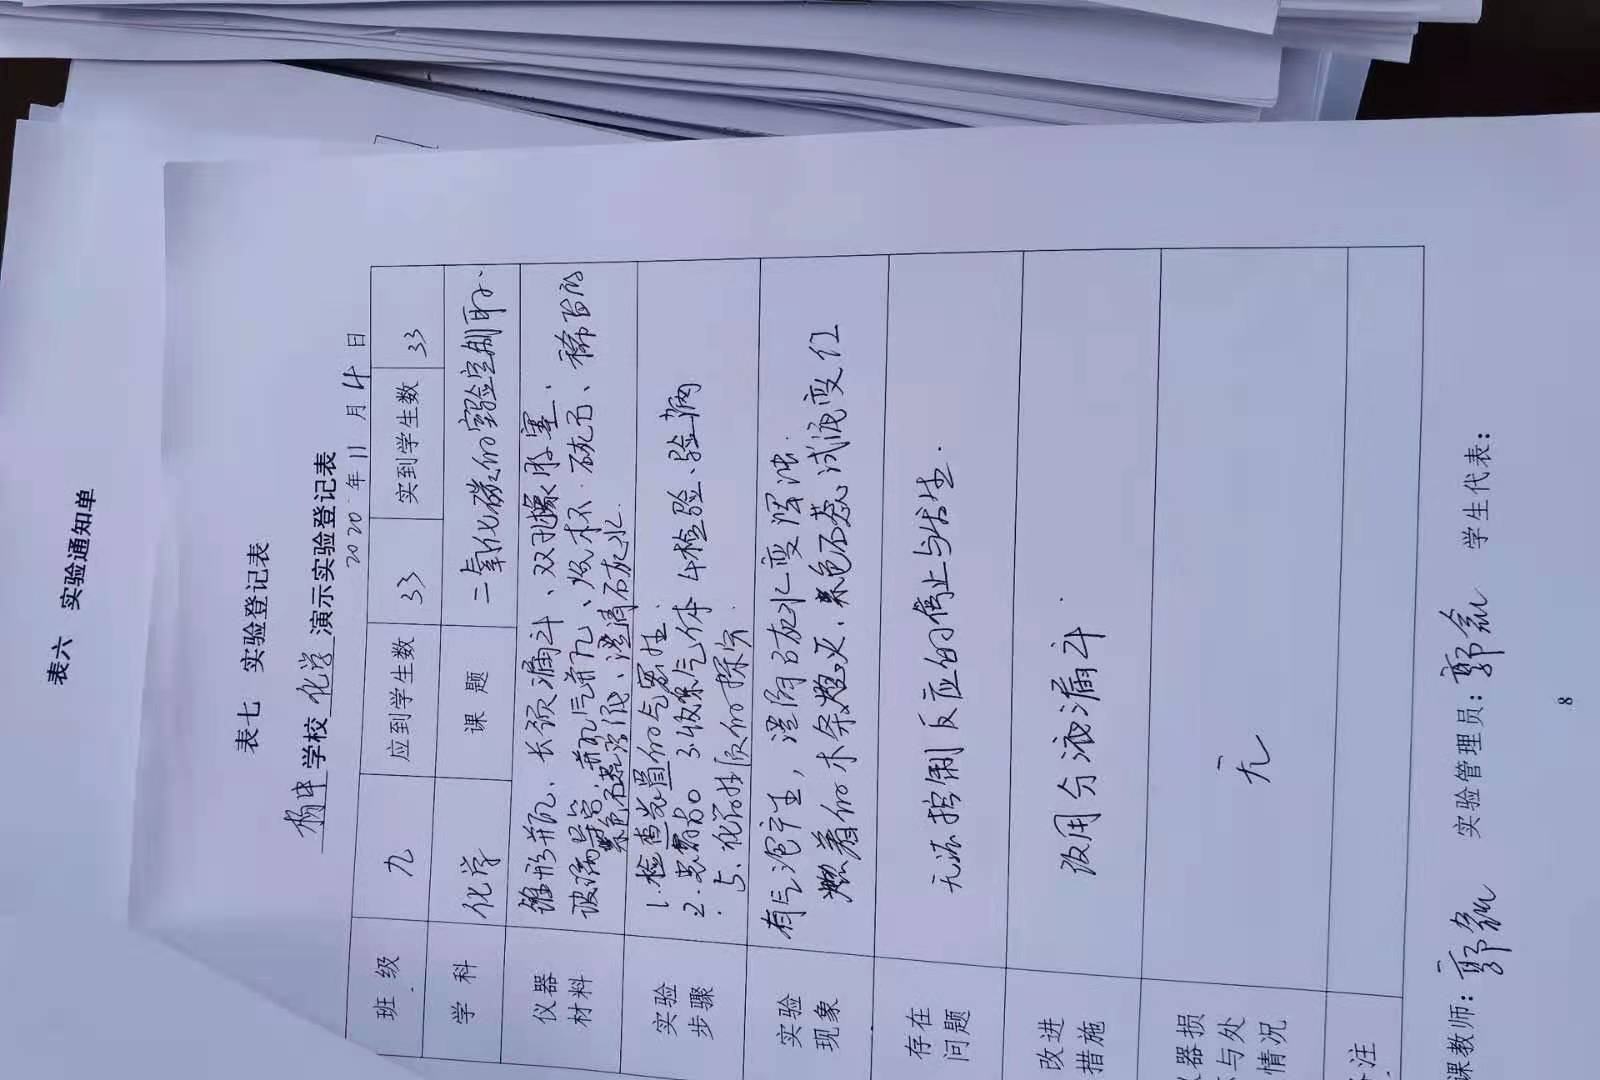 表六 实验通知单
表七 实验登记表
杨中学校化学演示实验登记表
2020年11月4日
班级 九 应到学生数 33 实到学生数 33
学科 化学 课题 二氧化碳的实验室制取
仪器材料
锥形瓶、长颈漏斗、双孔橡胶塞、
玻璃导管、集气瓶、烧杯、石灰石、稀盐酸
紫色石蕊试纸、澄清石灰水
实验步骤
1.检查装置的气密性
2. 3.收集气体 4.检验、验满
5.化学性质的探究
实验现象
有气泡产生，澄清石灰水变浑浊.
燃着的木条熄灭.紫色石蕊试纸变红
存在问题
无法控制反应的停止与发生.
改进措施
改用分液漏斗.
器损
与处
情况
无
注
课教师：郭 实验管理员：郭 学生代表：
8